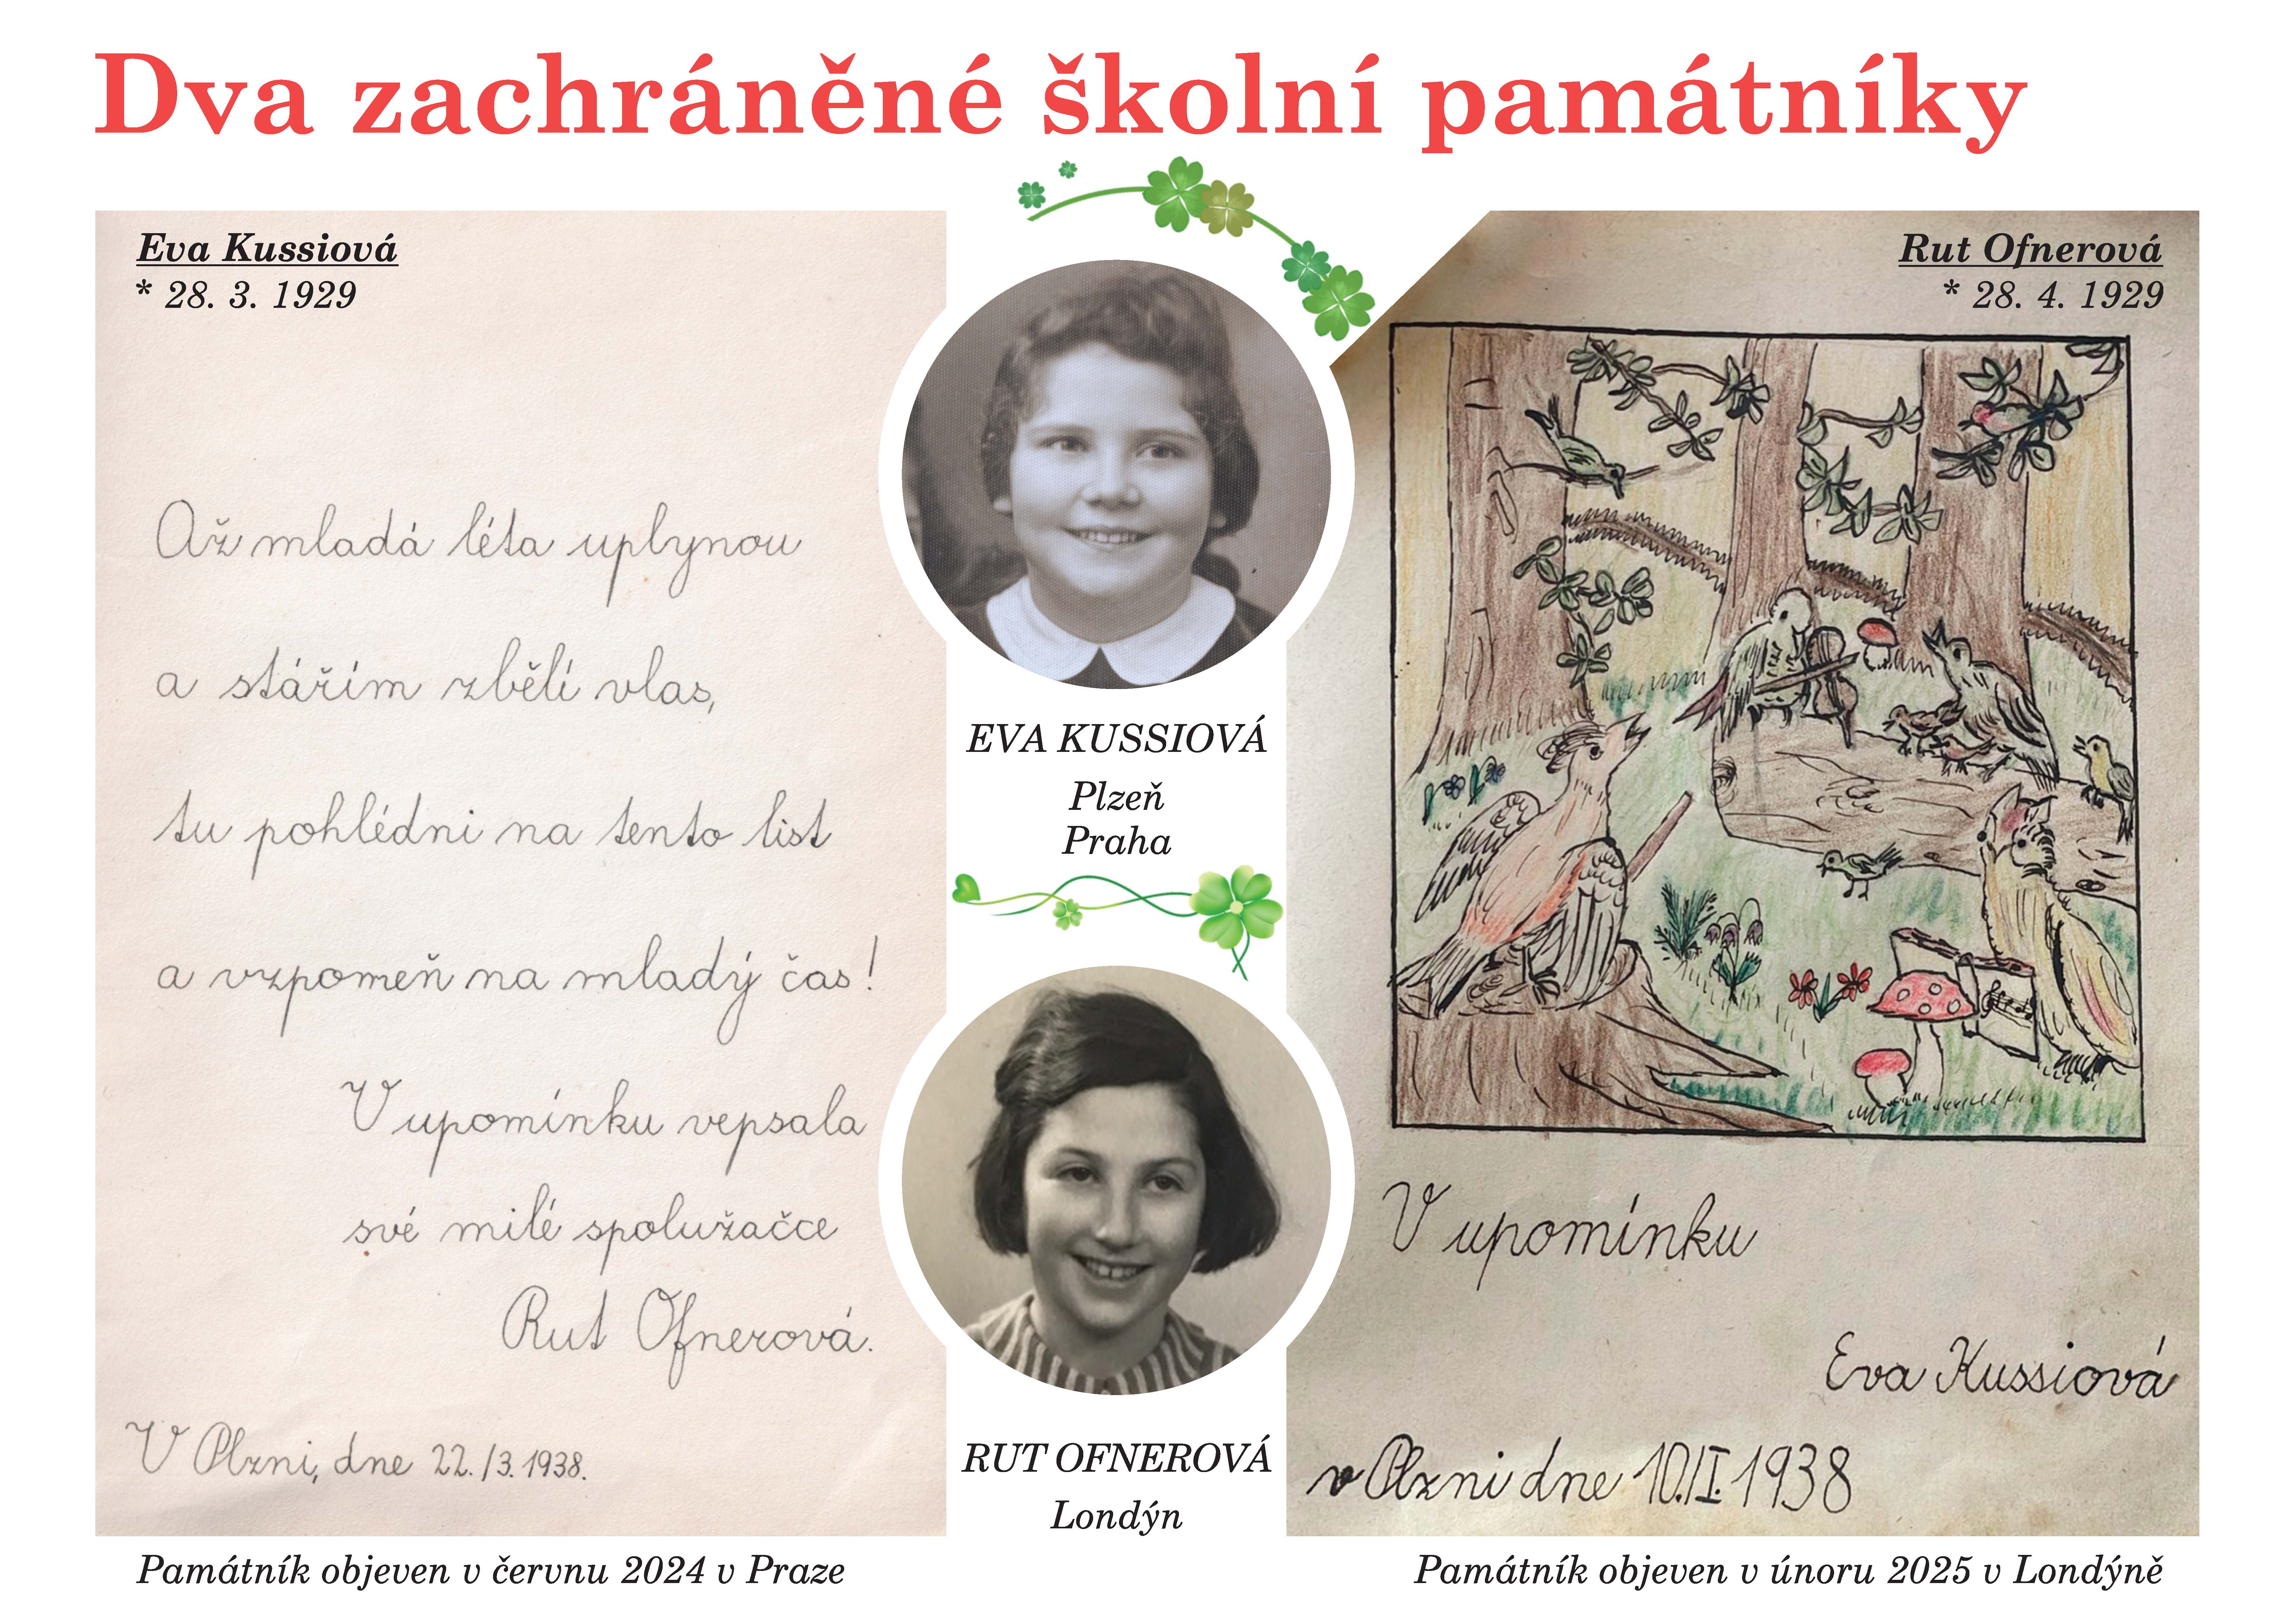 Dva zachráněné školní památníky
Eva Kussiová
* 28. 3. 1929
Až mladá léta uplynou
a stářím zbělí vlas,
tu pohlédni na tento list
a vzpomeň na mladý čas!
V upomínku vepsala
své milé spolužačce
Rut Ofnerová.
V Plzni, dne 22./3. 1938.
Památník objeven v červnu 2024 v Praze
EVA KUSSIOVÁ
Plzeň
Praha
RUT OFNEROVÁ
Londýn
Rut Ofnerová
* 28. 4. 1929
V upomínku
Eva Kussiová
v Plzni dne 10./I. 1938
Památník objeven v únoru 2025 v Londýně